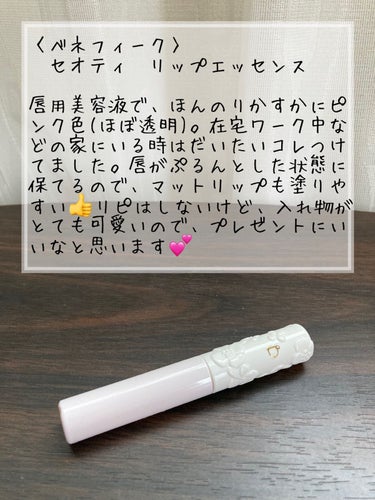 〈ベネフィーク〉
セオティ　リップエッセンス
唇用美容液で、ほんのりかすかにピ
ンク色(ほぼ透明)。在宅ワーク中な
どの家にいる時はだいたいコレつけ
てました。唇がぷるんとした状態に
保てるので、マットリップも塗りや
すい👍リピはしないけど、入れ物が
とても可愛いので、プレゼントにい
いなと思います💕